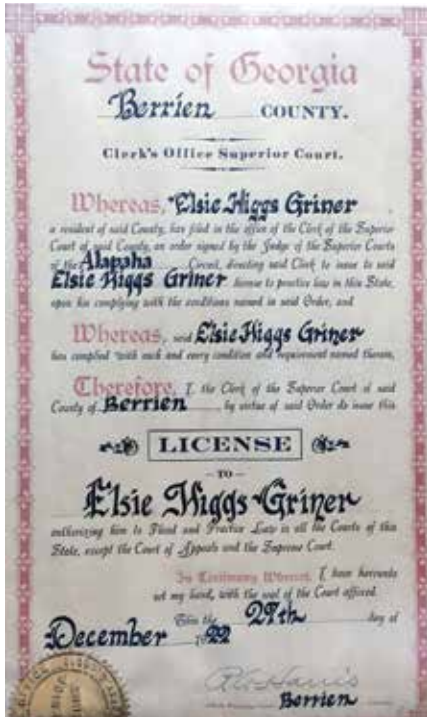 State of Georgia
Berrien COUNTY.
Clerk's Office Superior Court.
Whereas, Elsie Higgs Griner,
a resident of said County, has filed in the office of the Clerk of the Superior
Court of said County, an order signed by the Judge of the Superior Courts
of the Alapaha Circuit, directing said Clerk to issue to said
Elsie Higgs Griner license to practice law in this State,
upon his complying with the conditions named in said Order, and
Whereas, said Elsie Higgs Griner
has complied with each and every condition and requirement named therein,
Therefore, I, the Clerk of the Superior Court of said
County of Berrien, by virtue of said Order do issue this
LICENSE
—TO—
Elsie Higgs Griner
authorizing him to Plead and Practice Law in all the Courts of this
State, except the Court of Appeals and the Supreme Court.
In Testimony Whereof, I have hereunto
set my hand, with the seal of the Court affixed.
This the 29th day of
December 1922
Harris
Berrien